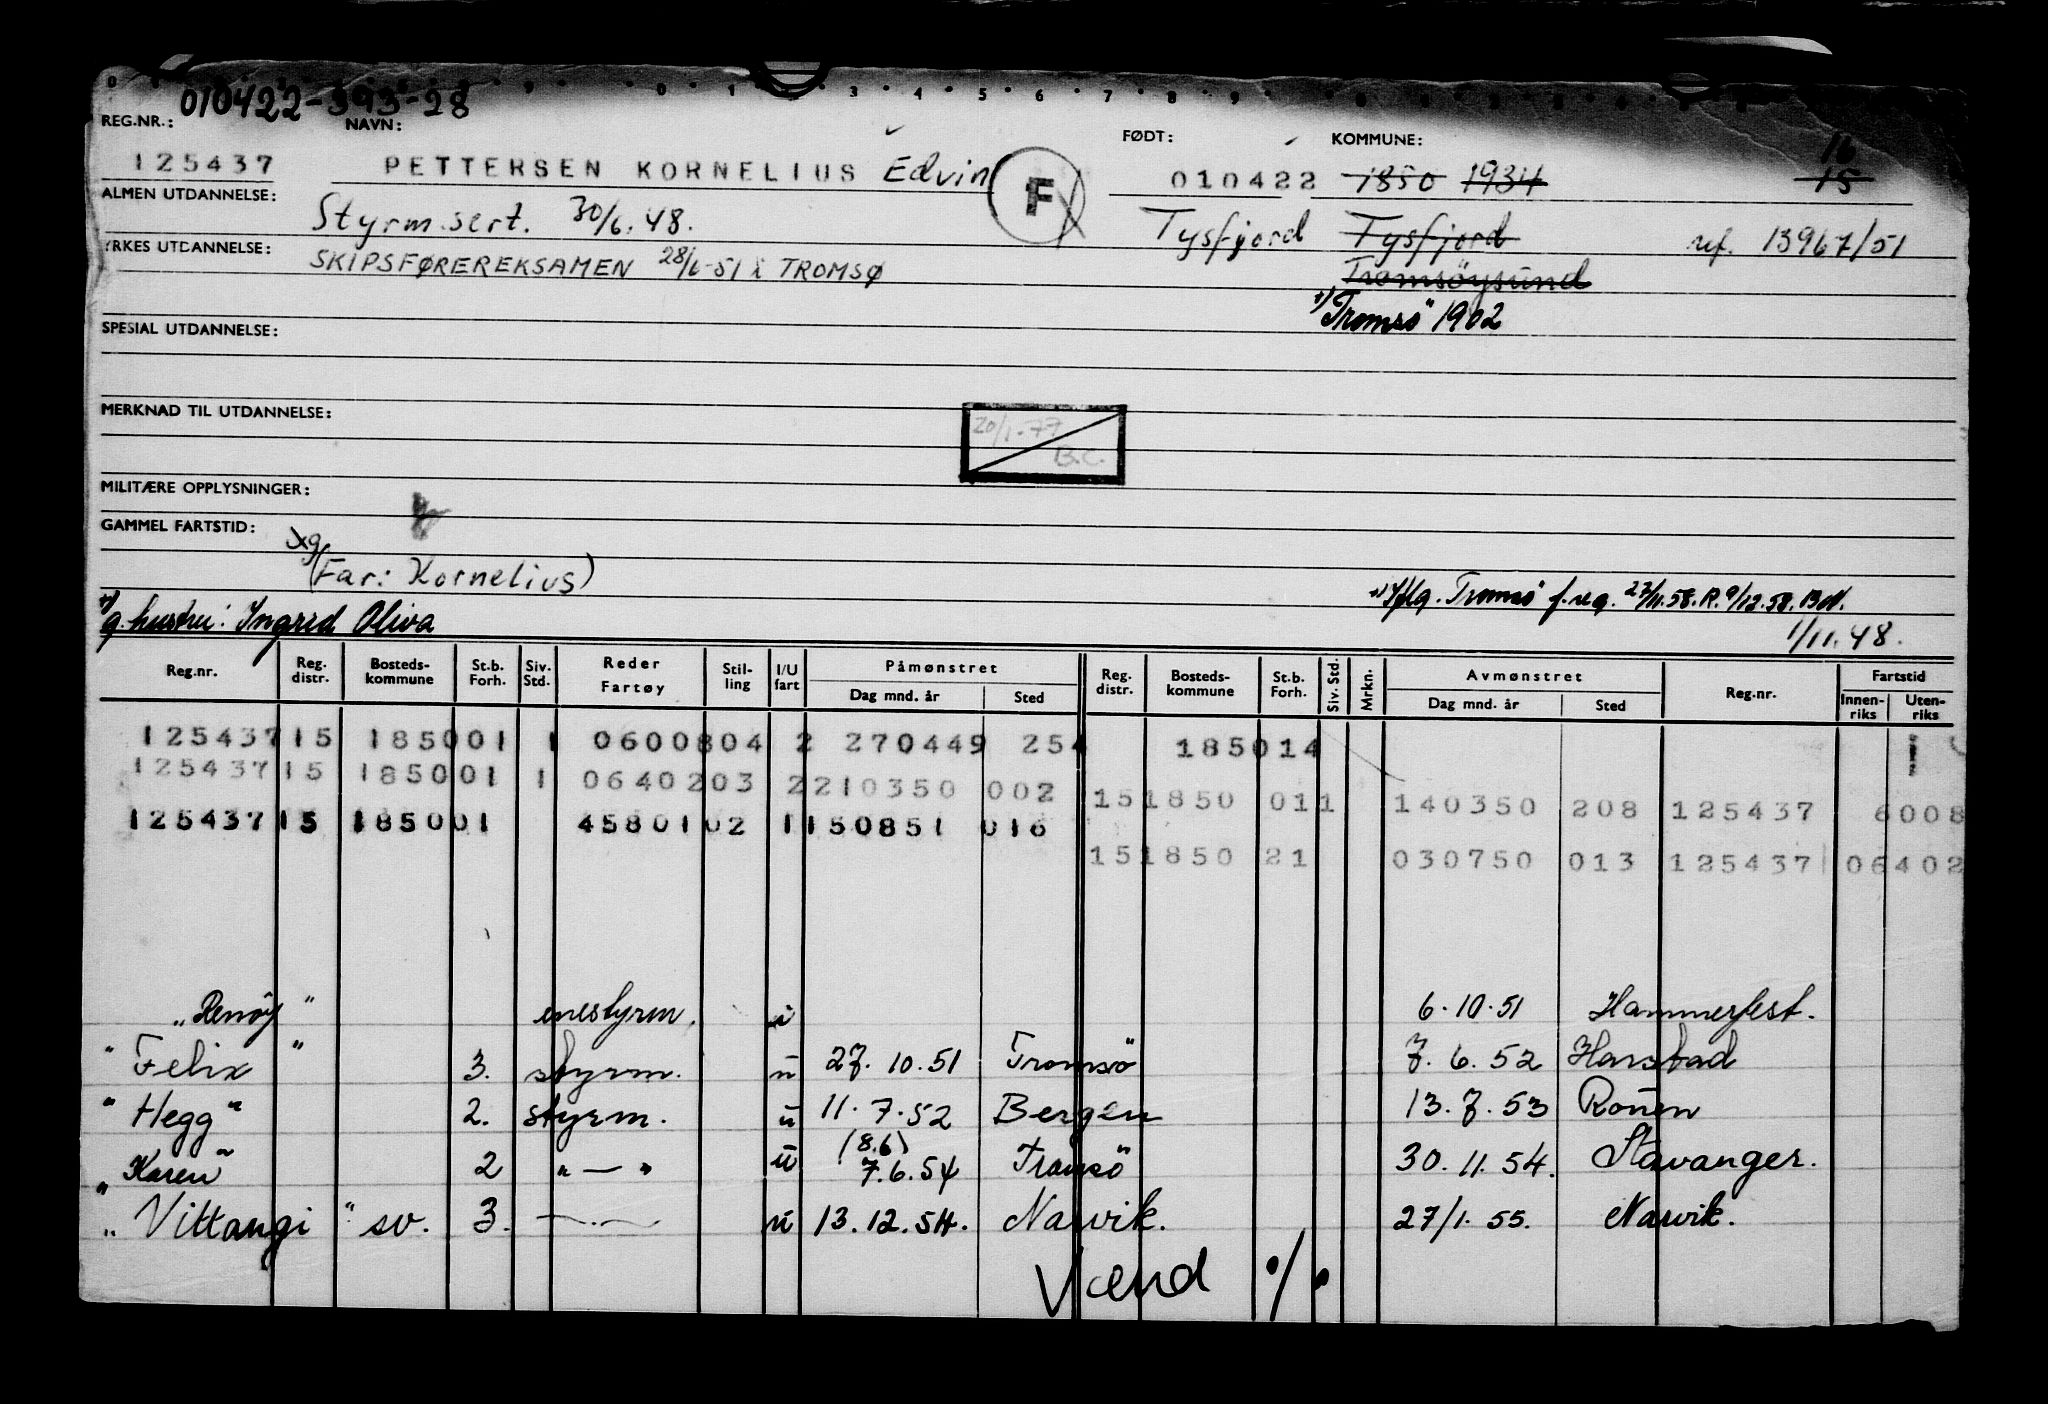 010422-393-28
REG.NR.: NAVN: FØDT: KOMMUNE: 16
125437 PETTERSEN KORNELIUS Edvin F 010422 1850 1934 15
ALMEN UTDANNELSE: Styrm.sert. 30/6.48. Tysfjord Tysfjord ref. 13967/51
YRKES UTDANNELSE: SKIPSFØREREKSAMEN 28/6-51 i TROMSØ Tromsöysund
+) Tromsö 1902
SPESIAL UTDANNELSE:
MERKNAD TIL UTDANNELSE:
20/1.77
B.C.
MILITÆRE OPPLYSNINGER:
GAMMEL FARTSTID:
(Far: Kornelius)
+) Iflg. Tromsö f.reg. 27/11.58. R. 9/12.58.
+) g. hustru: Ingrid Oliva
1/11.48.
Reg.nr. Reg. distr. Bosteds-kommune St.b. Forh. Siv. Std. Reder Fartøy Stil-ling I/U fart Påmønstret Dag mnd. år Sted Reg. distr. Bosteds-kommune St.b. Forh. Siv. Std. Mrkn. Avmønstret Dag mnd. år Sted Reg.nr. Fartstid Innen-riks Uten-riks
125437 15 1850 01 1 0600804 2 270449 254 1850 14
125437 15 1850 01 1 0640203 2 210350 002 15 1850 01 1 140350 208 125437 6008
125437 15 1850 01 4580102 1 150851 016
15 1850 21 030750 013 125437 06402
"Renöy" enestyrm. i 6.10.51 Hammerfest.
"Felix" 3. styrm. u 27.10.51 Tromsö 7.6.52 Harstad
"Hegg" 2. styrm. u 11.7.52 Bergen 13.7.53 Rouen
(8.6)
"Karen" 2 " — " u 7.6.54 Tromsö 30.11.54. Stavanger.
"Vittangi" sv. 3. —..— u 13.12.54. Narvik. 27/1.55. Narvik.
Vend %